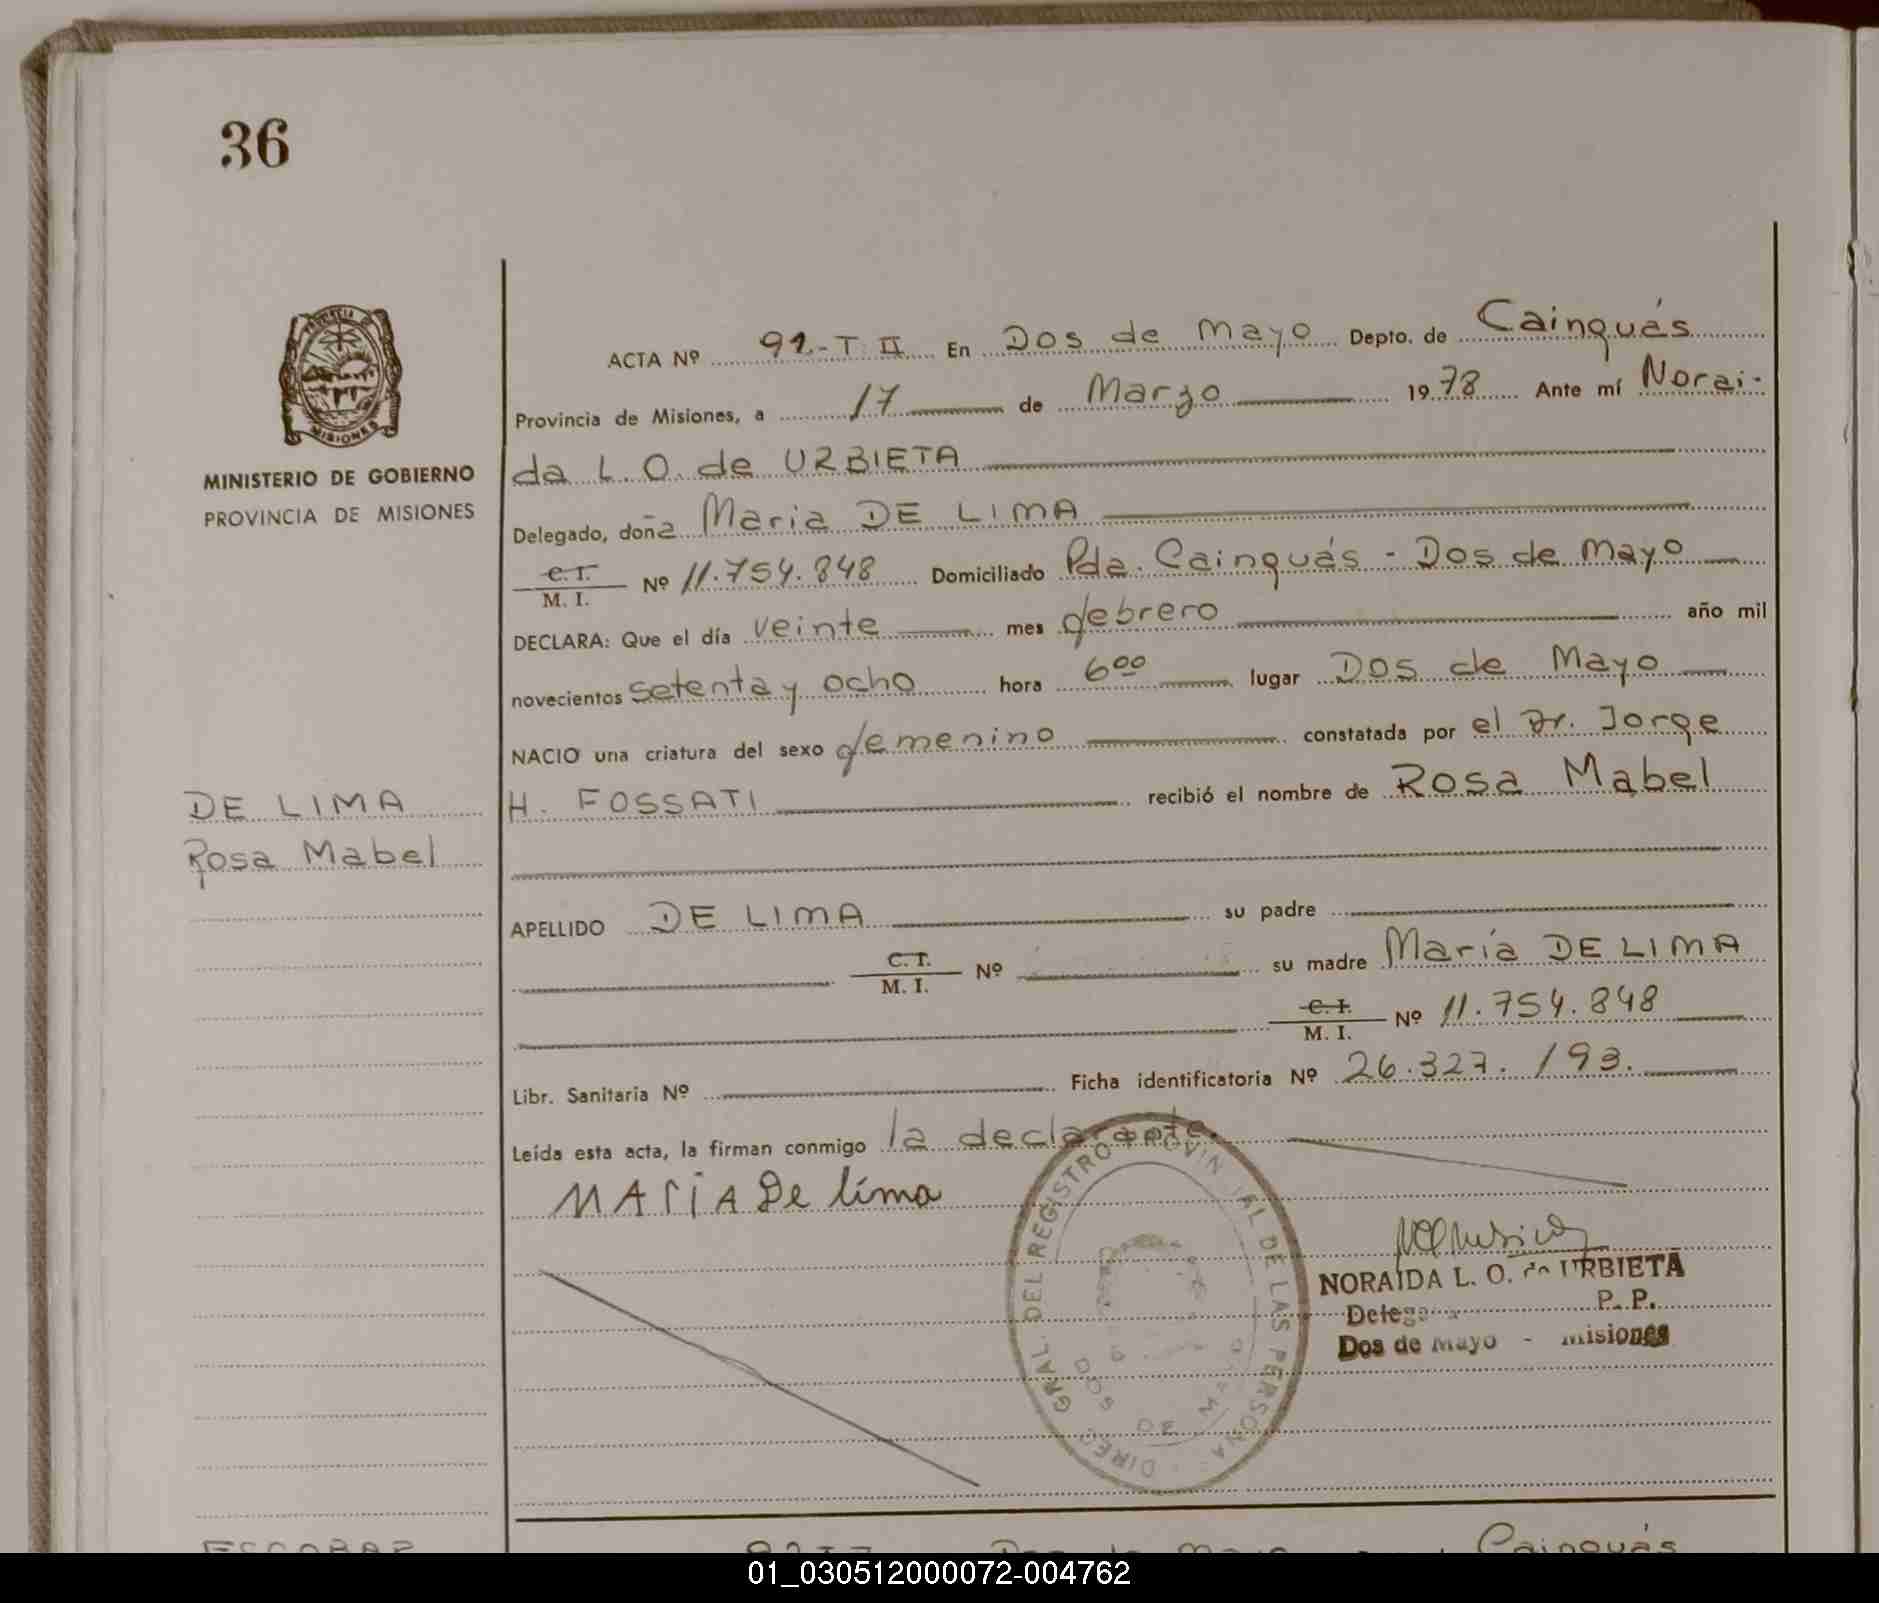 36
ACTA Nº 91-T II En Dos de Mayo Depto. de Cainguás
Provincia de Misiones, a 17 de Marzo 1978 Ante mí Norai-
da L. O. de URBIETA
Delegado, doña Maria DE LIMA
C. I. M. I. Nº 11.754.848 Domiciliado Pda. Cainguás - Dos de Mayo
DECLARA: Que el día veinte mes febrero año mil
novecientos setenta y ocho hora 6⁰⁰ lugar Dos de Mayo
NACIO una criatura del sexo femenino constatada por el Dr. Jorge
H. FOSSATI recibió el nombre de Rosa Mabel
APELLIDO DE LIMA su padre
C. I. M. I. Nº su madre María DE LIMA
C. I. M. I. Nº 11.754.848
Libr. Sanitaria Nº Ficha identificatoria Nº 26.327.193.
Leída esta acta, la firman conmigo la declarante.
MARIA De lima
MINISTERIO DE GOBIERNO
PROVINCIA DE MISIONES
PROVINCIA DE MISIONES
DE LIMA
Rosa Mabel
DIREC. GRAL. DEL REGISTRO PROVINCIAL DE LAS PERSONAS
DOS DE MAYO
NORAIDA L. O. de URBIETA
Delegada P. P.
Dos de Mayo - Misiones
ESCOBAR
Dos de Mayo Cainguás
01_030512000072-004762